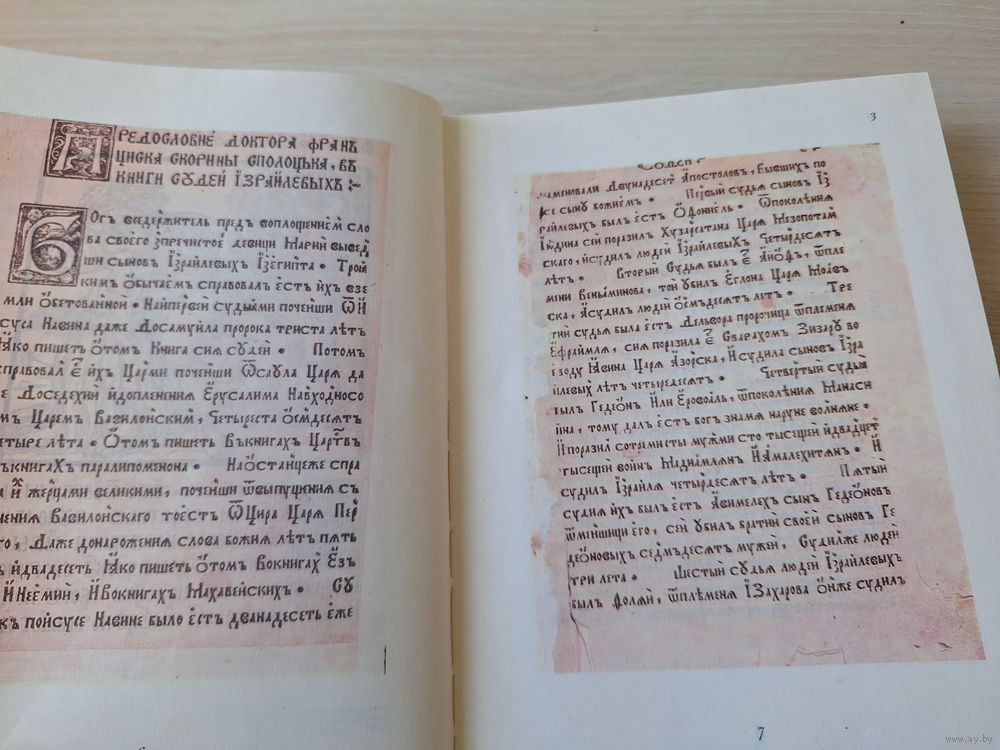 Предословие доктора Фран
циска Скорины сполоцька, въ
книги Судей Ізраилевыхъ :~
Богъ вседержитель предъ воплощениемъ сло
ва своего зпречистое девици Марии вывед
ши сыновъ Ізраилевых Ізегипта • Трой
кимъ ѡбычаем справовалъ естъ ихъ взе
мли ѡбетованной • Найпервей судьями поченши ѿ И
суса Навина даже досамуила пророка триста летъ
Ꙗко пишеть ѡтомъ Книга сия судей • Потом
справовалъ ихъ Царми поченши ѿсаула Царя да
е доседехии идополнения Ерусалима Навходносо
мъ Царемъ Вавилонскимъ, четыреста ѡсмдесятъ
четыре лета • Ѡтомъ пишеть вкнигахъ Царствъ
ъкнигахъ паралипоменона • Наѡстанцеже спра
и жерцами великими, поченши ѿвыпущения съ
чения Вавилонскаго тоестъ ѿЦира Царя Пер
го, даже донарожения слова божия летъ пять
ъ идвадесеть Ꙗко пишеть ѡтом вокнигах Ез
ѝ Неемии, Ивокнигахъ Махавейскихъ • Су
къ поисусе Навине было естъ дванадесеть еже
3
Судей
знаменовали двунадесет Апостоловъ, бывших по
сыну божиемъ • Первый судья сыновъ Із
раилевых былъ естъ Ѡфониелъ • ѿпоколения
Июдина сей поразилъ Хузарсатана Царя Мезопотам
скаго, исудилъ людей Ізраилевых четырдесятъ
летъ • Вторый судья былъ Аиодъ, ѿпле
мени Веньяминова, той убилъ Еглона Царя Моавъ
ска, Исудилъ людей ѡсмъдесятъ летъ • Тре
тий судья была естъ Дельвора пророчица ѿплемени
Ефраимля, сия поразила Сварахомъ Зизару во
еводу Ꙗвина Царя Азорска, Исудила сыновъ Ізра
илевых летъ четыредесятъ • Четвертый судья
былъ Гедеѡнъ Или Еровоалъ, ѿпоколения Манаси
ина, тому далъ естъ богъ знамя наруне волняне •
Ипоразил сотремисты мужми сто тысещей идвадцет
тысещей воинъ Мадиамлянъ Иамалехитянъ • И
судилъ Ізраиля четырдесятъ летъ • Пятый
судия ихъ былъ естъ Авимелех сынъ Гедеѡновъ
ѿменшици его, сей убилъ братии своей сыновъ Ге
деѡновых седмъдесятъ мужей, судилже людей
три лета • Шестый судья людей Ізраилевыхъ
былъ Ѳолай, ѿплеменя Ізахарова ѡнже судилъ
7
www.ay.by